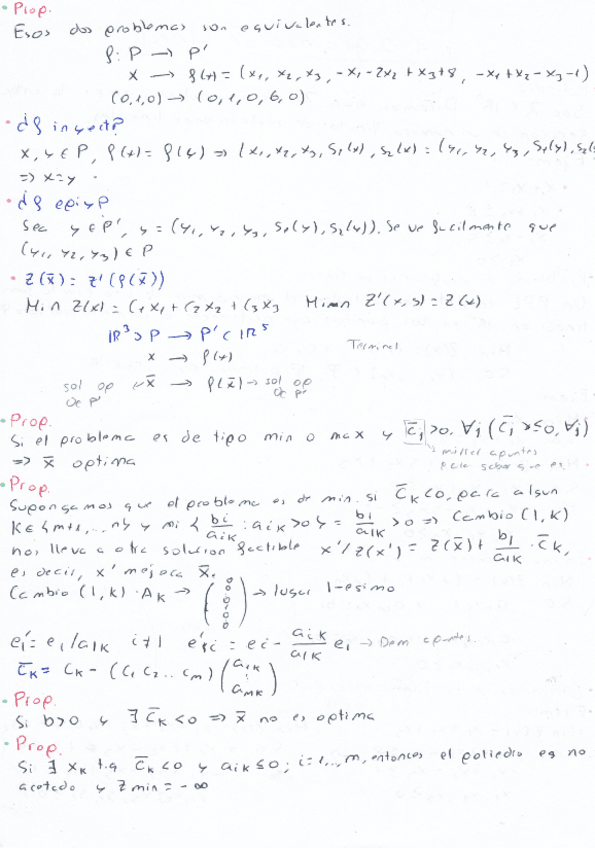 • Prop.
Esos dos problemas son equivalentes.
f: P → P'
x → f(x) = (x1, x2, x3, -x1-2x2+x3+8, -x1+x2-x3-1)
(0,1,0) → (0,1,0,6,0)
• d f inyect?
x, y ∈ P, f(x) = f(y) => (x1, x2, x3, S1(x), S2(x)) = (y1, y2, y3, S1(y), S2(y
=> x=y.
• d f epiy?
Sea y ∈ P', y = (y1, y2, y3, S1(y), S2(y)). Se ve facilmente que
(y1, y2, y3) ∈ P
• Z(x̄) = Z'(f(x̄))
Min Z(x) = C1x1 + C2x2 + C3x3 Z'(x,s) = Z(x)
ℝ³ ⊃ P → P' ⊂ ℝ⁵
x → f(x)
Terminel
sol op de P' x̄ → f(x̄) → sol op de P'
• Prop.
Si el problema es de tipo min o max y c̄j >0, ∀j (c̄j ≤0, ∀j)
=> x̄ optima
mirar apuntes
para saber que es.
• Prop.
Supongamos que el problema es de min. si c̄K<0, para algun
K ∈ {m+1,..., n} y mi { bi/aiK : aiK>0 } = b1/a1K >0 => Cambio (1,K)
nos lleva a otra solucion factible x' / Z(x') = Z(x̄) + b1/a1K · c̄K,
es decir, x' mejora x̄.
Cambio (1,K) · AK → (0 0 0 0 0 0) → lugar 1-esimo
e'1 = e1/a1K i≠1 e'i = ei - aiK/a1K e1 → Dem apuntes.
c̄K = CK - (C1 C2 .. Cm) (a1K ⋮ amK)
• Prop.
Si b>0 y ∃ c̄K<0 => x̄ no es optima
• Prop.
Si ∃ xK t.q c̄K<0 y aiK ≤0; i=1,..,m, entonces el poliedro es no
acotado y Zmin = -∞